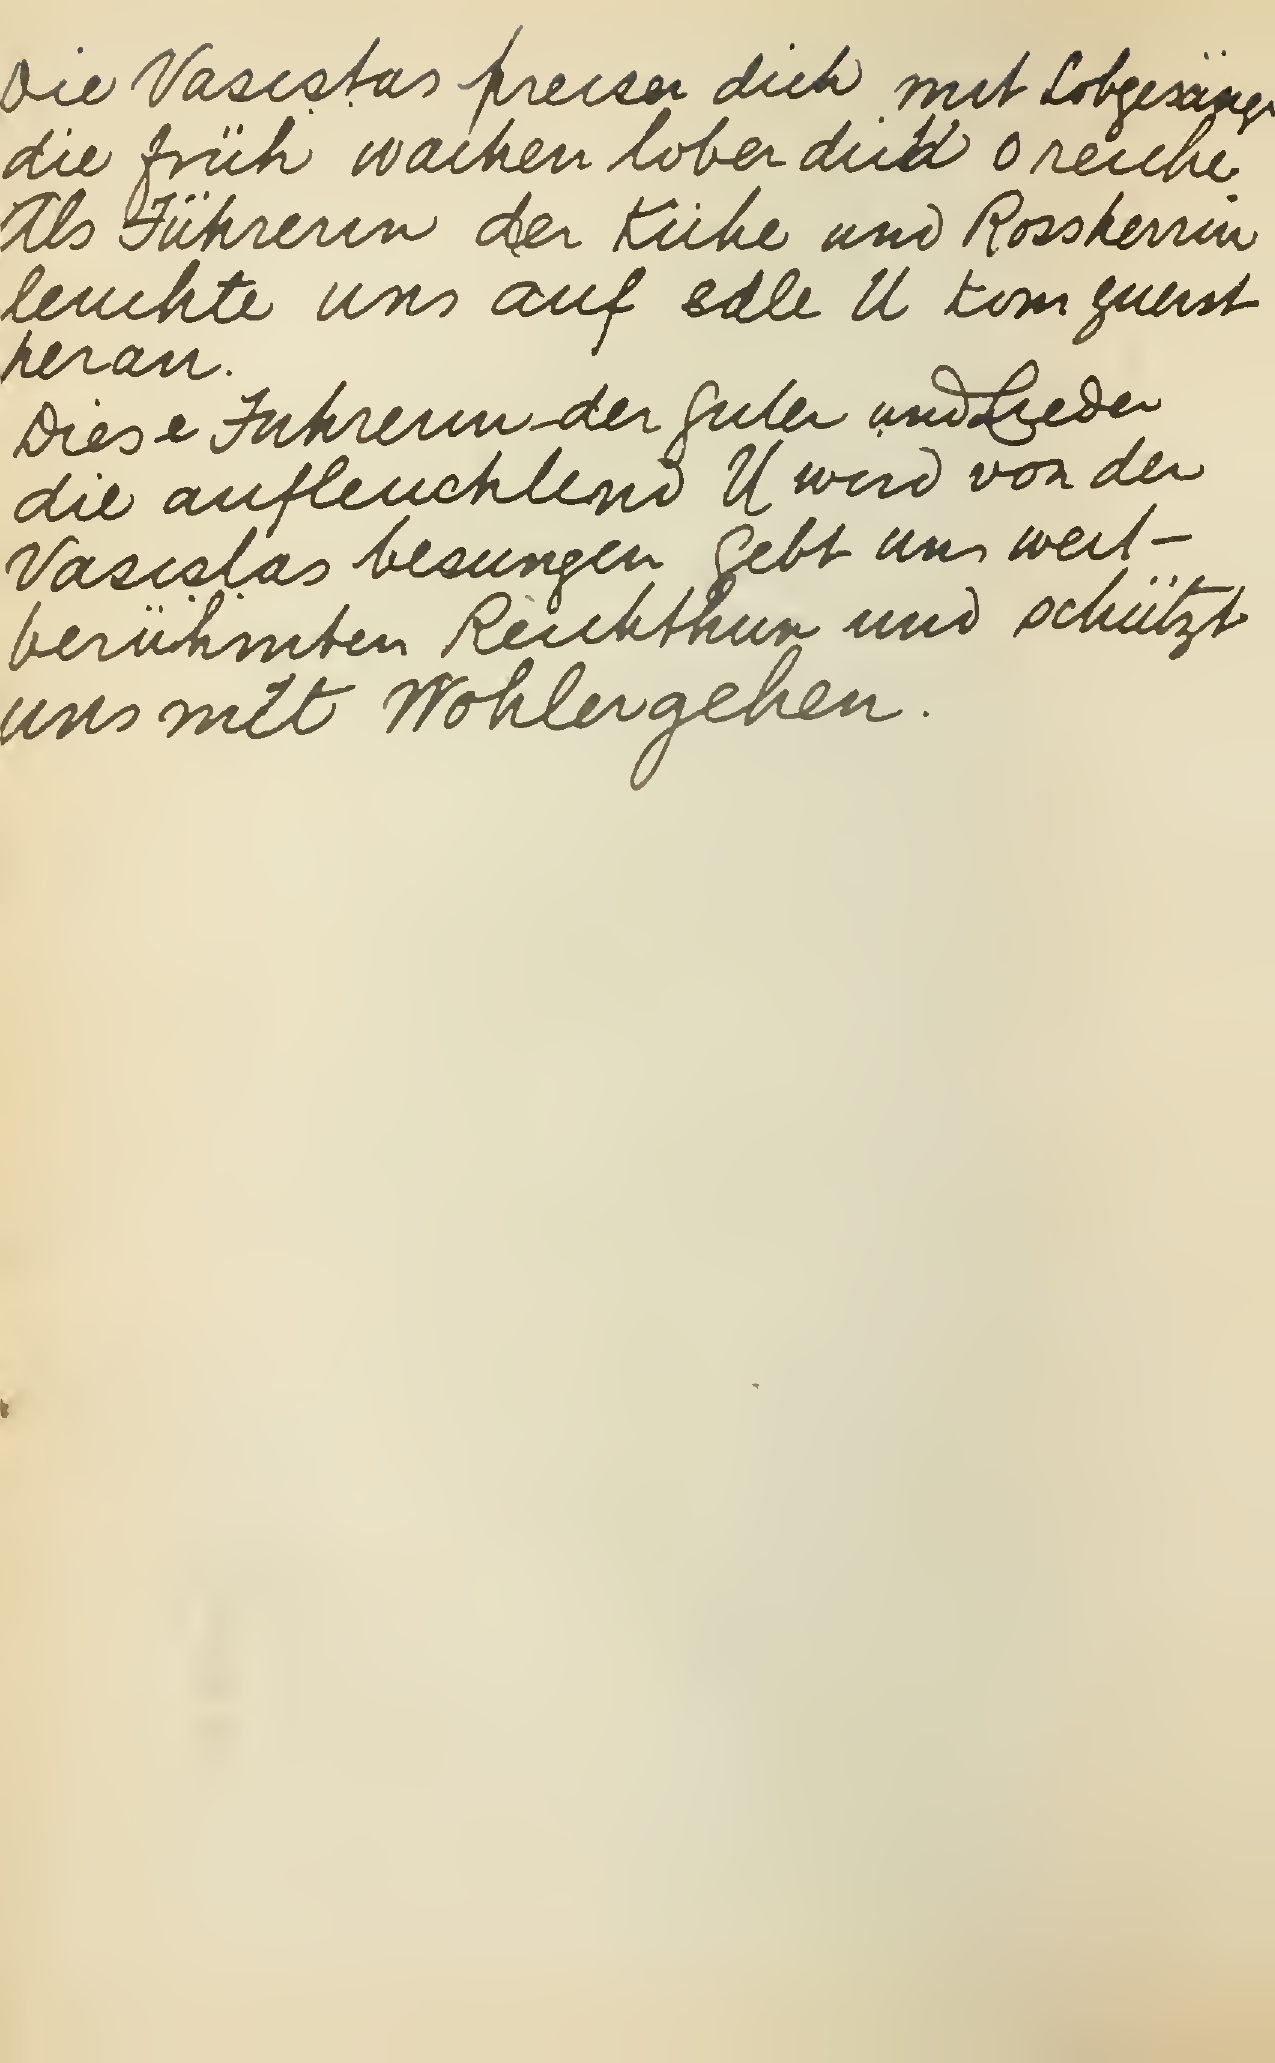 Die Vasiṣṭas preisen dich mit Lobgesängen
die früh wachen loben dich o reiche
Als Führerin der Kühe und Rossherrin
leuchte uns auf edle U kom zuerst
heran.
Diese Fuhrerin der guten und Lieder
die aufleuchtend U wird von den
Vasiṣṭas besungen gebt uns weit-
berühmten Reichthum und schützt
uns mit Wohlergehen.